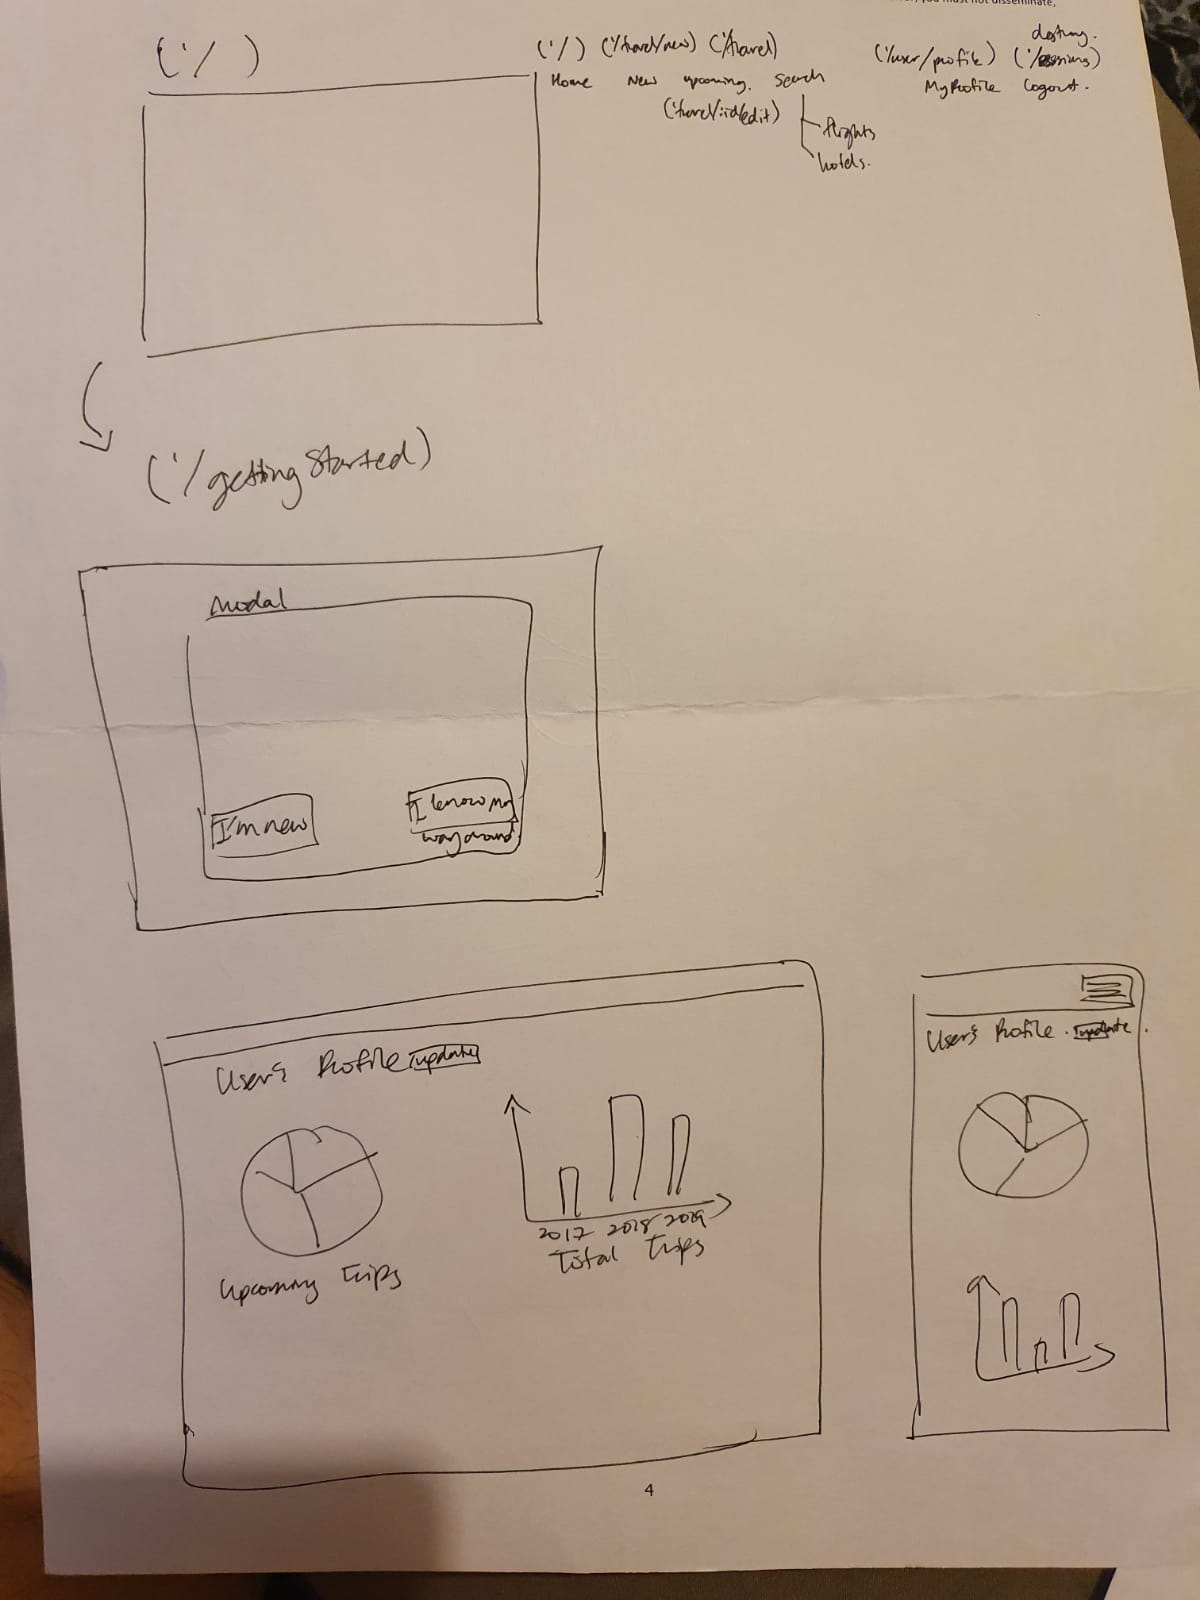 you must not disseminate,
('/ )
('/) ('/travel/new) ('/travel)
Home New upcoming. Search
('travel/:id/edit)
flights
hotels.
destroy.
('/user/profile) ('/sessions)
My Profile Logout.
('/gettingStarted)
Modal
I'm new
I know my
way around
User's Profile update
2017 2018 2019
Total Trips
Upcoming Trips
User's Profile. update.
4